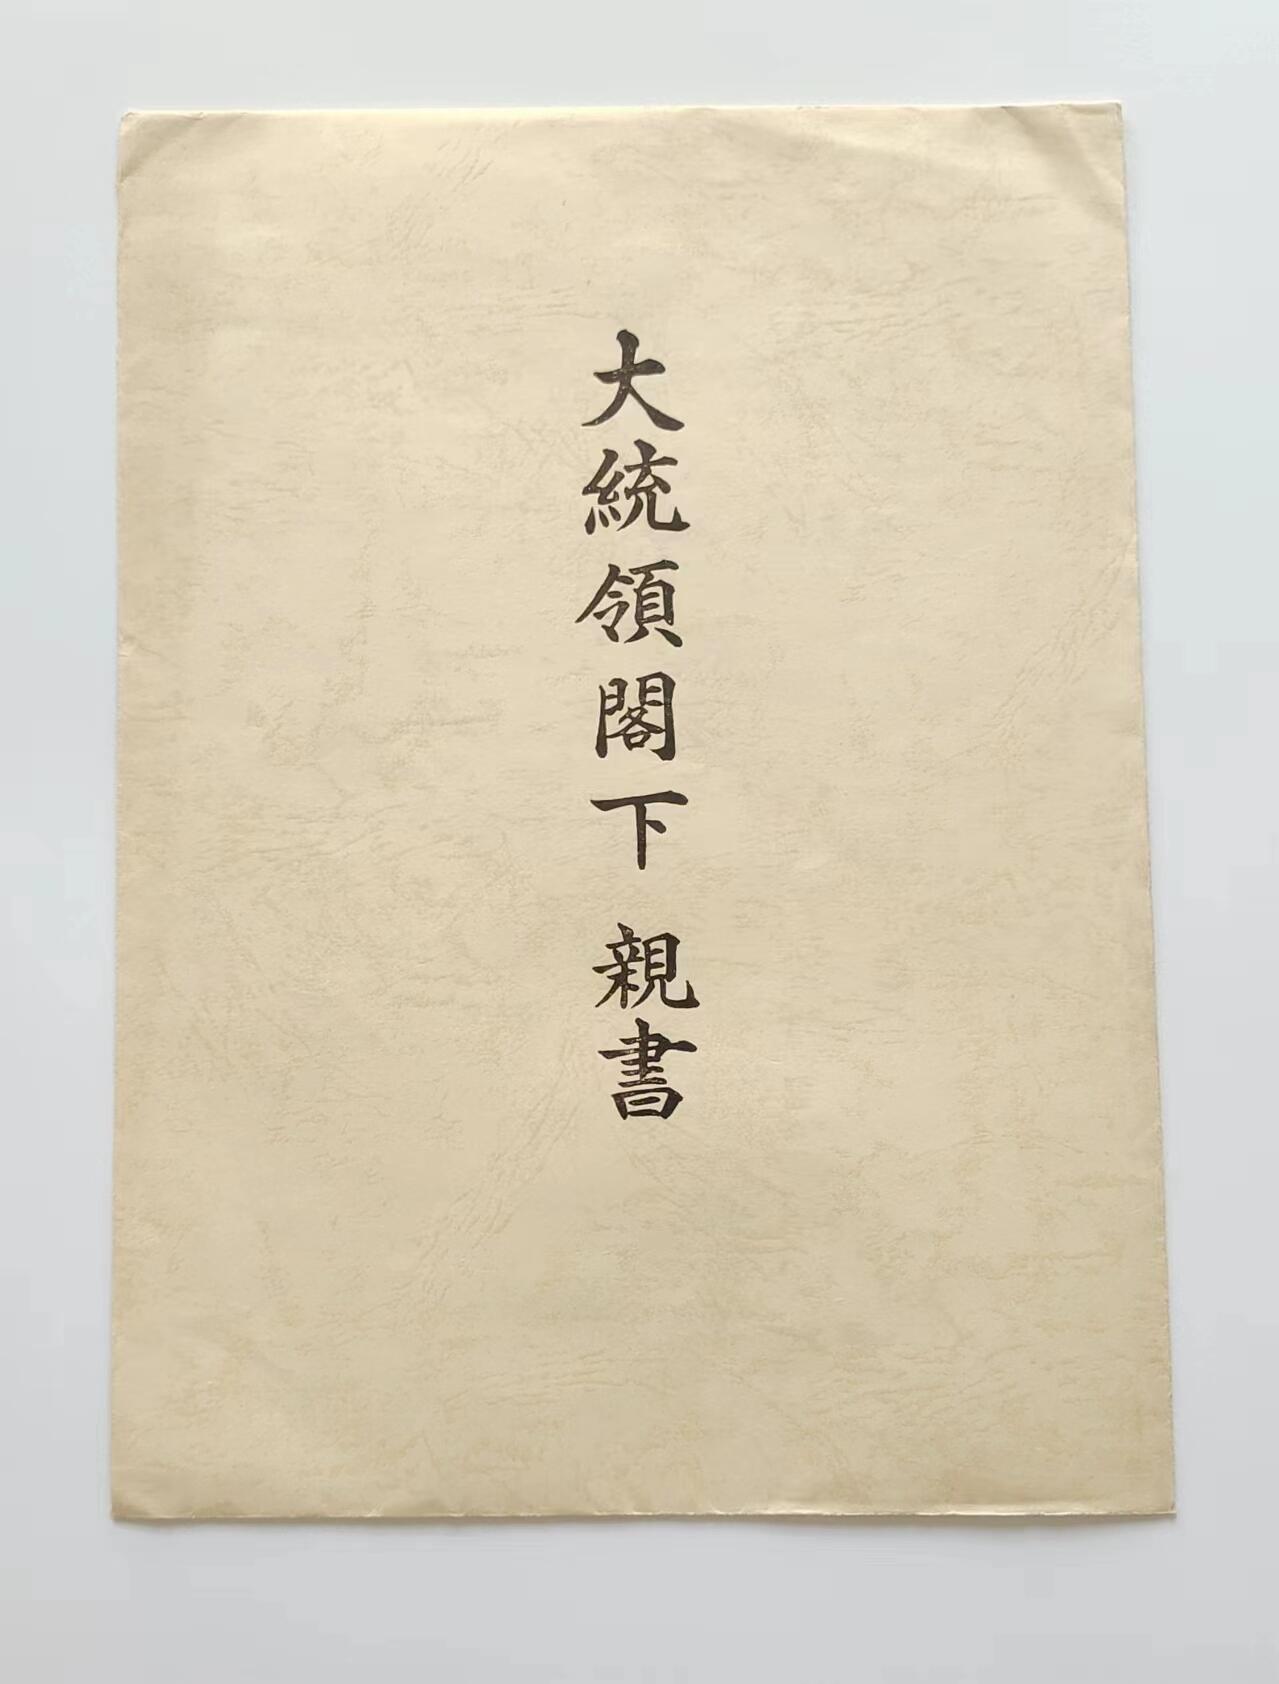 大統領閣下 親書